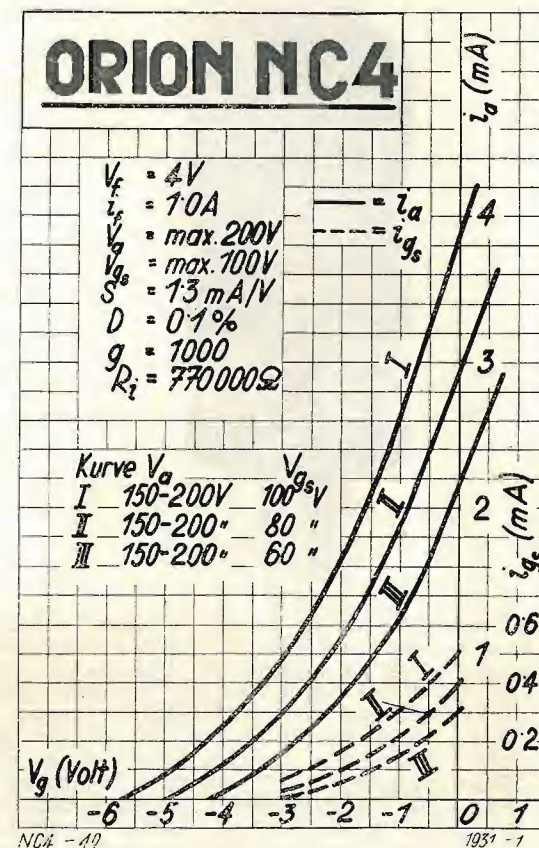 ORION NC4
i_a (mA)
V_f = 4V
i_f = 1·0A
V_a = max. 200V
V_gs = max. 100V
S = 1·3 mA/V
D = 0·1%
g = 1000
R_i = 770000Ω
= i_a
= i_gs
4
I
3
Kurve V_a V_gs
I 150-200V 100 V
II 150-200" 80 "
III 150-200" 60 "
II
2
III
i_gs (mA)
0·6
1
I
0·4
II
0·2
III
V_g (Volt)
-6 -5 -4 -3 -2 -1 0 1
NC4 - 1931-1